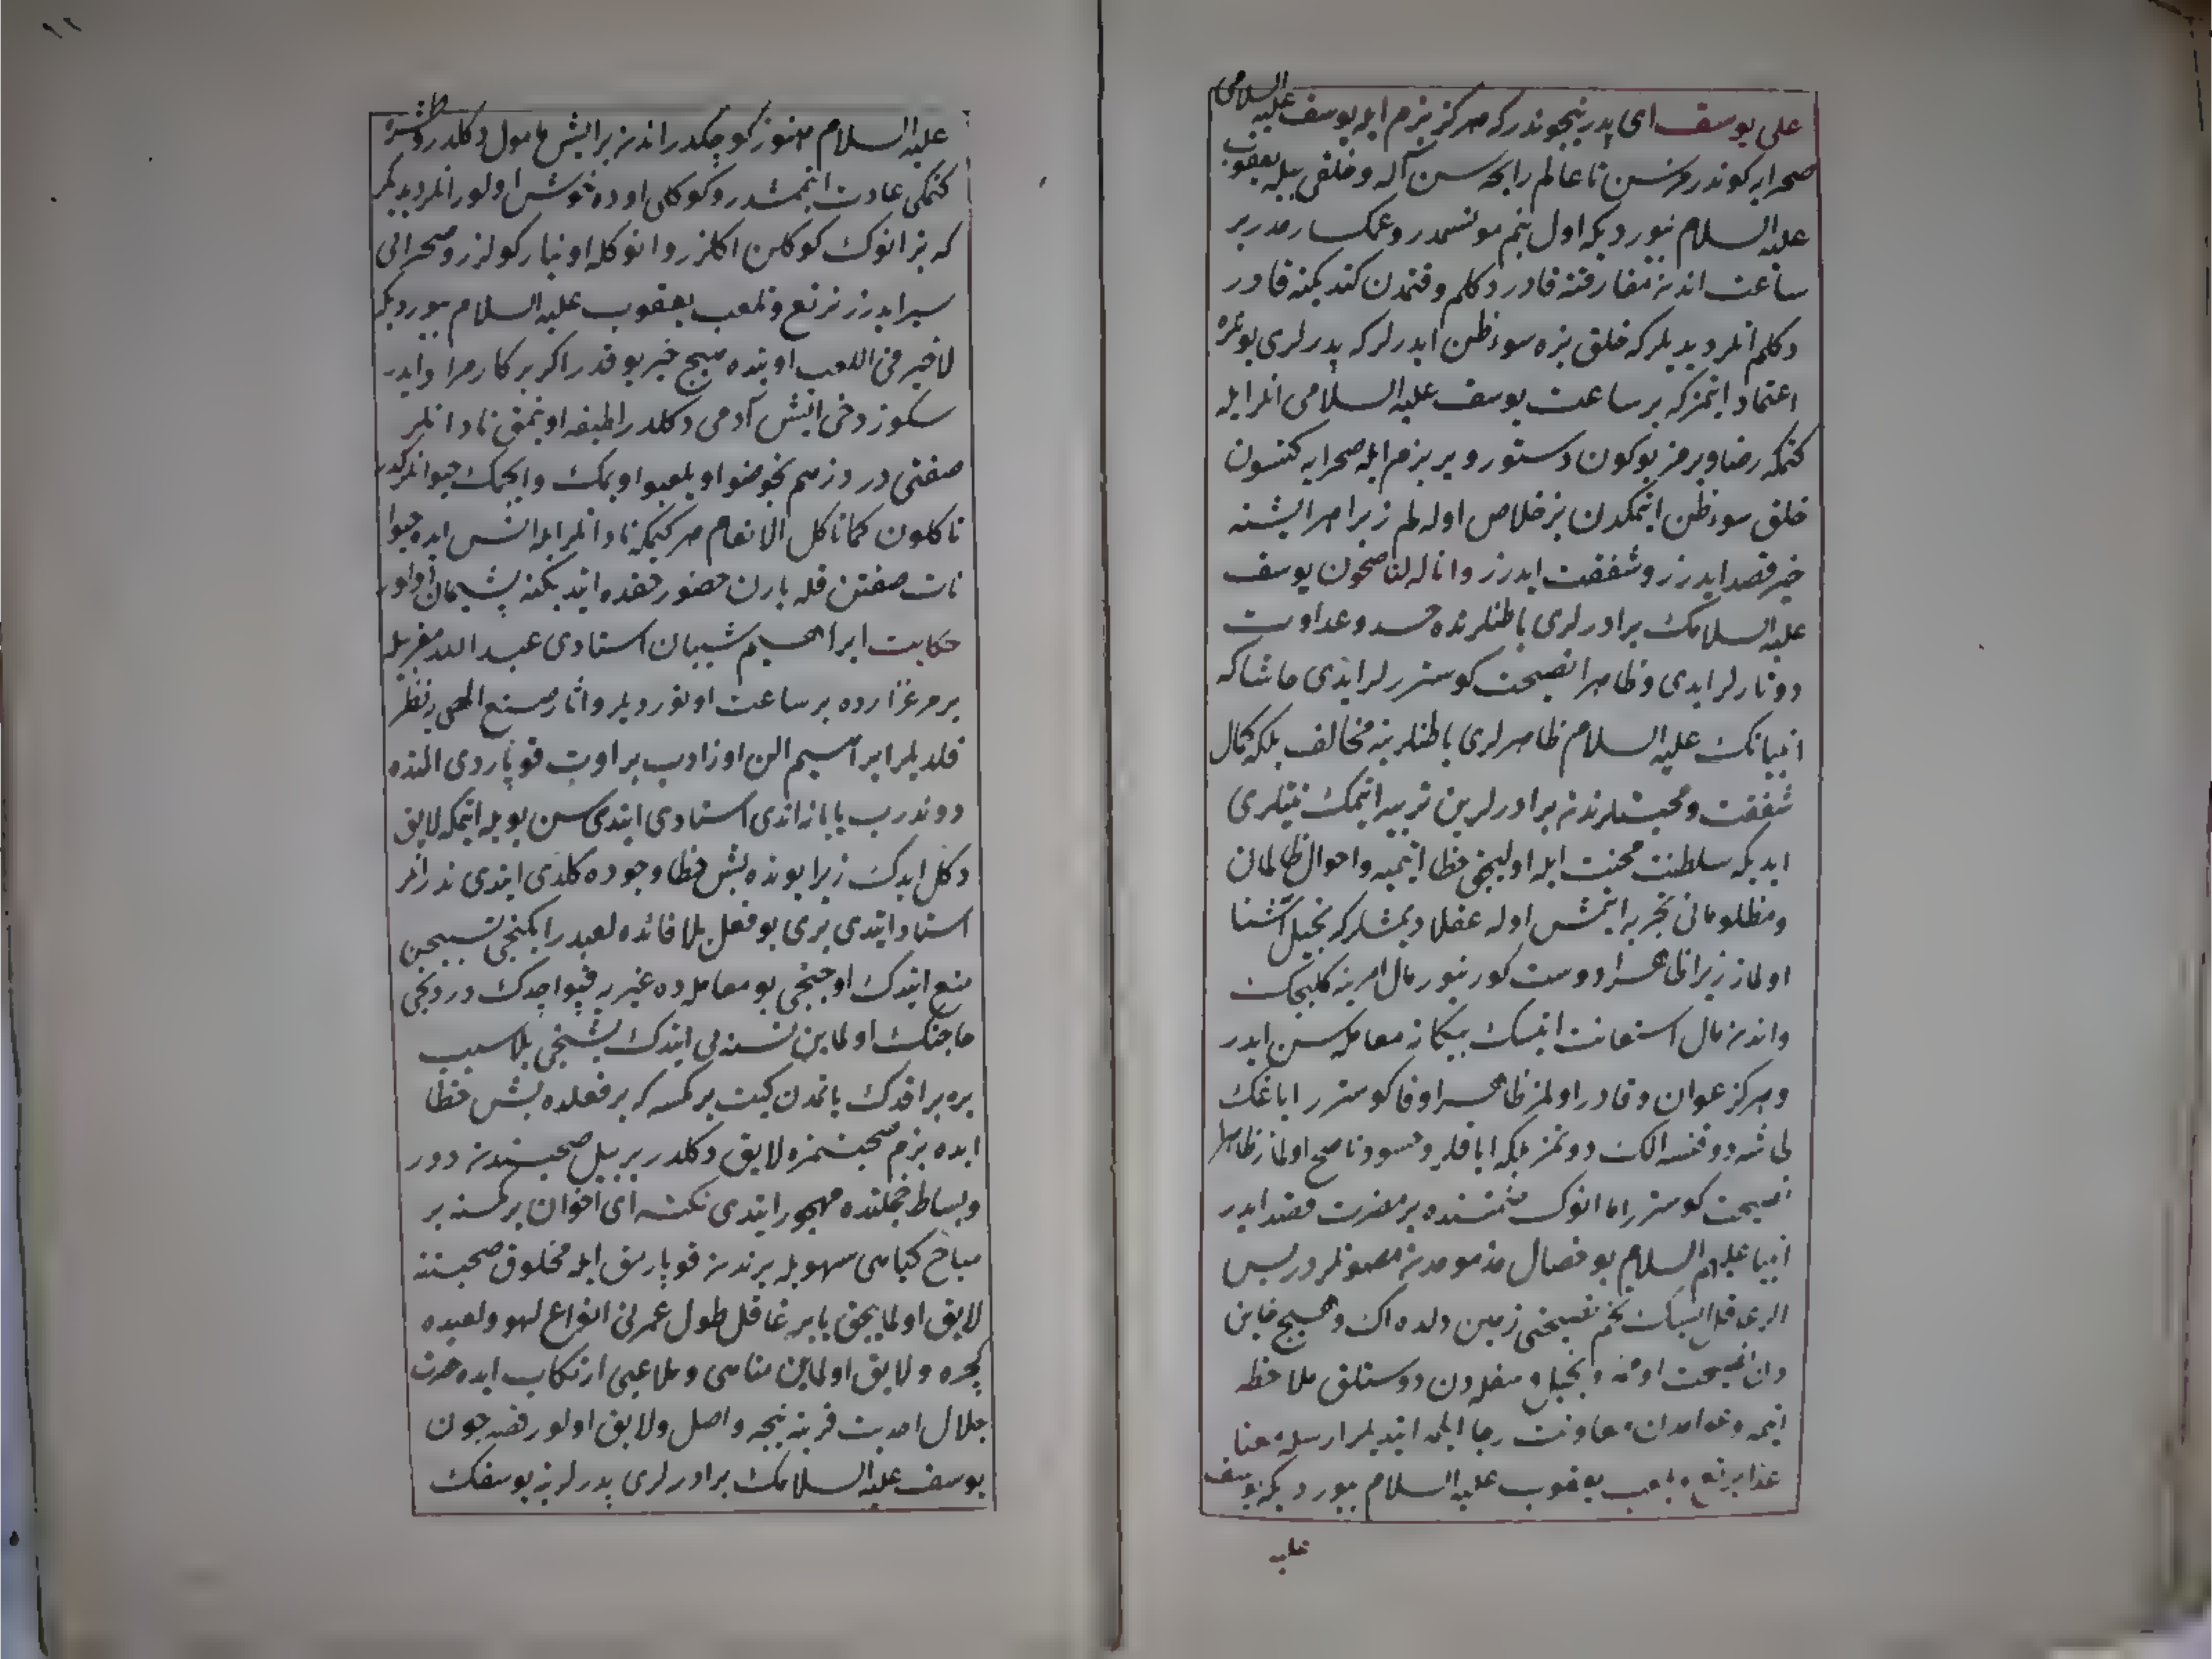 علی یوسف ای پدر نیچوندر که هرکز بزم ایله یوسف علیه السلامی
صحرایه کوندرمزسن تا عالم رایحه سن آله و خلقی بیله یعقوب
علیه السلام بیوردیکه اول بنم مونسمدر و غمکسارمدر بر
ساعت اندن مفارقته قادر دکلم و قتمدن کتدیکنه قادر
دکلم انلر دیدیلر که خلق بزه سوءظن ایدرلر که پدرلری بونلره
اعتماد ایتمز که بر ساعت یوسف علیه السلامی انلر ایله
کتمکه رضا ویرمز بوکون دستور ویر بزم ایله صحرایه کتسون
خلق سوءظن ایتمکدن بز خلاص اوله لم زیرا هر ایشته
خیر قصد ایدرز و شفقت ایدرز وانا له لناصحون یوسف
علیه السلامک برادرلری باطنلرنده حسد و عداوت
دوتارلر ایدی و ظاهرا نصیحت کوسترلر ایدی حاشاکه
انبیانک علیه السلام ظاهرلری باطنلرینه مخالف بلکه کمال
شفقت و محبتلرندن برادرلرین تربیه ایتمک نیتلری
ایدیکه سلطنت محنت ایله اولیجق خطا ایتمیه و احوال ظالمان
و مظلومانی تجربه ایتمش اوله عقلا دیمشلر که بخیل آشنا
اولماز زیرا ظاهرا دوست کورنیور مال امرینه کلیجک
واندن مال استعانت ایتسک بیکانه معامله سن ایدر
و هرکز عوان وفادار اولمز ظاهرا وفا کوسترر
دوتمز بلکه و حسود ناصح اولماز ظاهرا
نصیحت کوسترر اما انوک ضمننده بر مضرت قصد ایدر
انبیا علیهم السلام بو خصال مذمومه دن مصونلردر پس
نصیحتی زمین دلده اک و هیچ خاین
دن نصیحت اومه و بخیل و دن دوستلق ملاحظه
ایتمه و معاونت رجا ایلمه ایتدیلر ارسله معنا
غدا یرتع و یلعب یعقوب علیه السلام بیوردیکه یوسف
علیه
علیه السلام هنوز کوچکدر اندن بر ایش مامول دکلدر و طشره
کتمکی عادت ایتممشدر و کوکلی اوده خوش اولور انلر دیدیلر
که بز انوک کوکلن اکلرز وانوکله اوینار کولرز و صحرایی
سیر ایدرز نرتع و نلعب یعقوب علیه السلام بیوردیکه
لا خیر فی اللعب اوینده هیچ خیر یوقدر اکر بر کار مراد ایدر
سکوز دخی ایش آدمی دکلدر لطیفه اوینمق نادانلر
صفتی در ذرهم یخوضوا و یلعبوا و یمک و ایچمک حیوانلرکدر
تاکلون کما تاکل الانعام هر کیمکه نادانلر ایله انس ایده حیوا
نات صفتن قله یارن حضور حقده ایتدیکنه پشیمان اولور
حکایت ابراهیم شیبان استادی عبد الله مغربیله
بر مرغزارده بر ساعت اوتوردیلر و آثار صنع الهی یه نظر
قلدیلر ابراهیم الن اوزادب بر اوت قوپاردی النده
دوندرب یابانه اتدی استادی ایتدی سن بویله ایتمکه لایق
دکل ایدک زیرا بونده بش خطا وجوده کلدی ایتدی ندر انلر
استاد ایتدی بری بو فعل بلا فائده لعبدر ایکنجی تسبیحن
منع ایتدک اوچنجی بو معامله ده غیریه قپو اچدک دردنجی
حاجتک اولماین نسنه یی ایتدک بشنجی بلا سبب
یره براقدک یانمدن کیت بر کمسه که بر فعلده بش خطا
ایده بزم صحبتمزه لایق دکلدر بر ییل صحبتندن دور
و بساط خجلتده مهجور ایتدی نکته ای اخوان بر کمسه بر
مباح کیاهی سهویله یرندن قوپارمق ایله مخلوق صحبتنه
لایق اولمایجق یا بر غافل طول عمرنی انواع لهو و لعبده
کچره و لایق اولماین مناهی و ملاعبی ارتکاب ایده حضرت
جلال احدیت قربنه نیجه واصل و لایق اولور قصه چون
یوسف علیه السلامک برادرلری پدرلرینه یوسفک